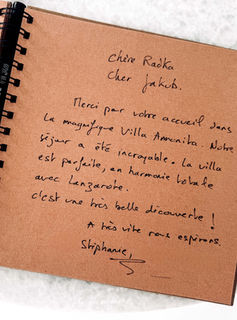 Chère Radka
Cher Jakub.
Merci pour votre accueil dans
la magnifique Villa Amonita. Notre
séjour a été incroyable. La villa
est parfaite, en harmonie totale
avec Lanzarote.
C'est une très belle découverte !
A très vite nous espérons.
Stéphanie,